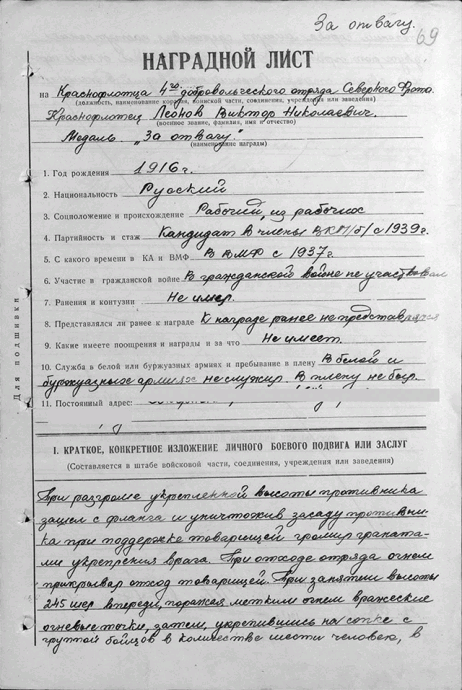 За отвагу.
69
НАГРАДНОЙ ЛИСТ
на Краснофлотца 4го добровольческого отряда Северного Флота.
(должность, наименование корпуса, воинской части, соединения, учреждения или заведения)
Краснофлотец Леонов Виктор Николаевич.
(военное звание, фамилия, имя и отчество)
Медаль „За отвагу."
(наименование награды)
1. Год рождения 1916 г.
2. Национальность Русский
3. Соцположение и происхождение Рабочий, из рабочих
4. Партийность и стаж Кандидат в члены ВКП/б/ с 1939 г.
5. С какого времени в КА и ВМФ В ВМФ с 1937 г.
6. Участие в гражданской войне В гражданской войне не участвовал
7. Ранения и контузии Не имел.
8. Представлялся ли ранее к награде К награде ранее не представлялся
9. Какие имеет поощрения и награды и за что Не имеет.
10. Служба в белой или буржуазных армиях и пребывание в плену В белой и
буржуазных армиях не служил. В плену не был.
11. Постоянный адрес:
Для подшивки
I. КРАТКОЕ, КОНКРЕТНОЕ ИЗЛОЖЕНИЕ ЛИЧНОГО БОЕВОГО ПОДВИГА ИЛИ ЗАСЛУГ
(Составляется в штабе войсковой части, соединения, учреждения или заведения)
При разгроме укрепленной высоты противника
зашел с фланга и уничтожив засаду противни-
ка при поддержке товарищей громил граната-
ми укрепления врага. При отходе отряда огнем
прикрывал отход товарищей. При занятии высоты
245 шел впереди, поражая метким огнем вражеские
огневые точки, затем, укрепившись на сопке с
группой бойцов в количестве шести человек, в